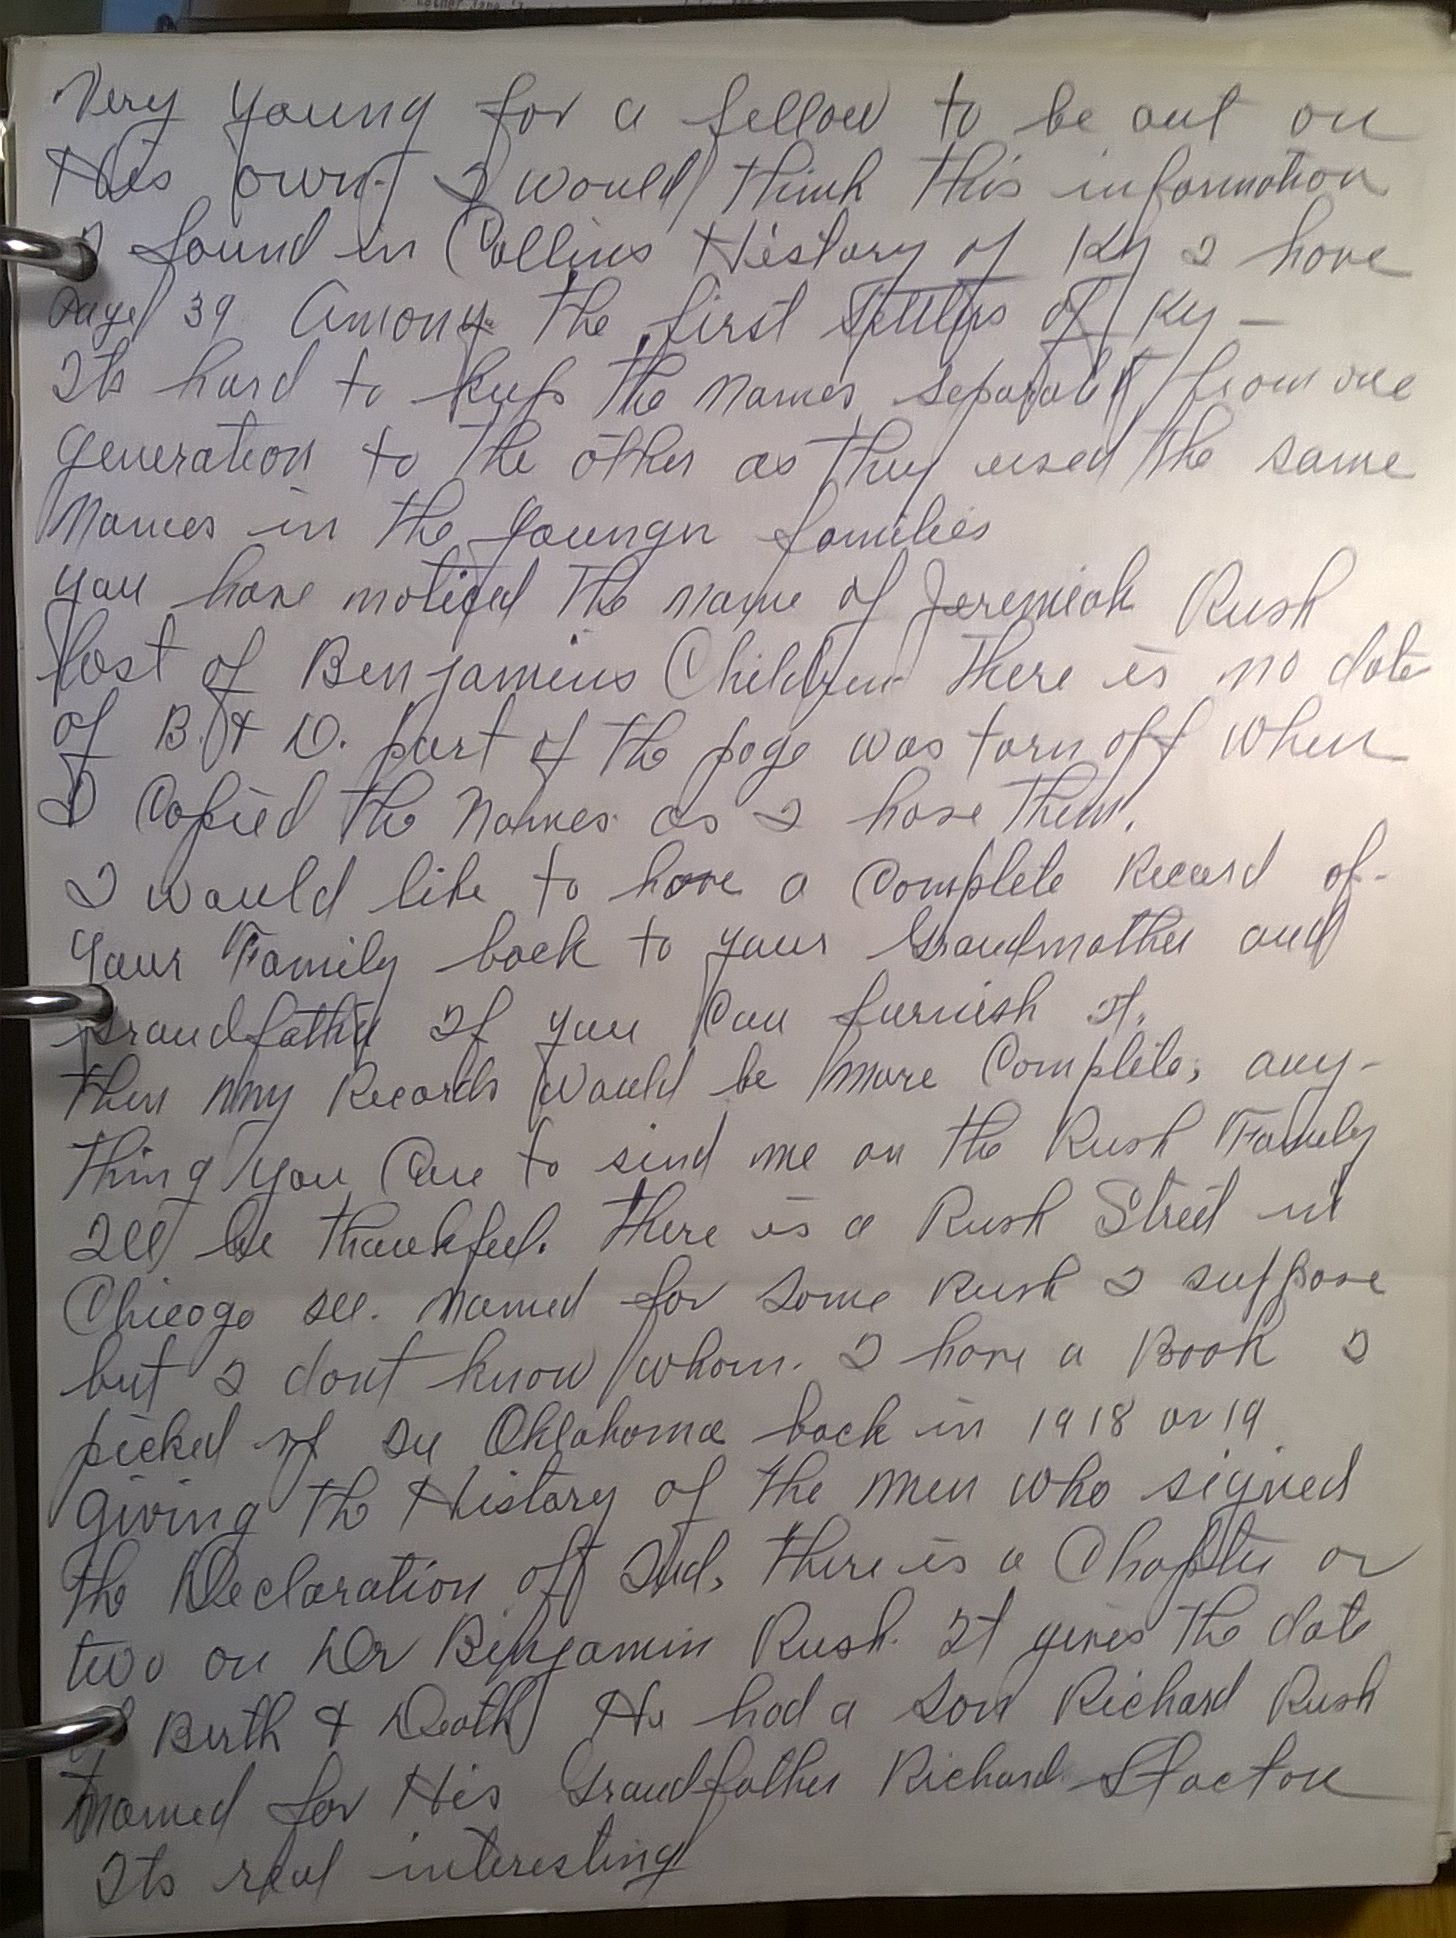 Very young for a fellow to be out on
His own. I would think this information
I found in Collins History of Ky I have
Page 39 Among the first Settlers of Ky —
Its hard to keep the names separate from one
generation to the other as they used the same
Names in the younger families
you have noticed the name of Jeremiah Rush
last of Benjamins Children There is no date
of B. & D. part of the page was torn off when
I Copied the Names as I have them.
I would like to have a Complete Record of
your Family back to your Grandmother and
Grandfather If you Can furnish It.
then my Records would be more Complete, any-
thing you Care to send me on the Rush Family
Ill be thankful. there is a Rush Street in
Chicago Ill. named for Some Rush I suppose
but I dont know whom. I have a Book I
picked up In Oklahoma back in 1918 or 19
giving the History of the men who signed
the Declaration of Ind, there is a Chapter or
two on Dr Benjamin Rush. It gives the date
of Birth & Death He had a Son Richard Rush
named for His Grandfather Richard Stocton
Its real interesting